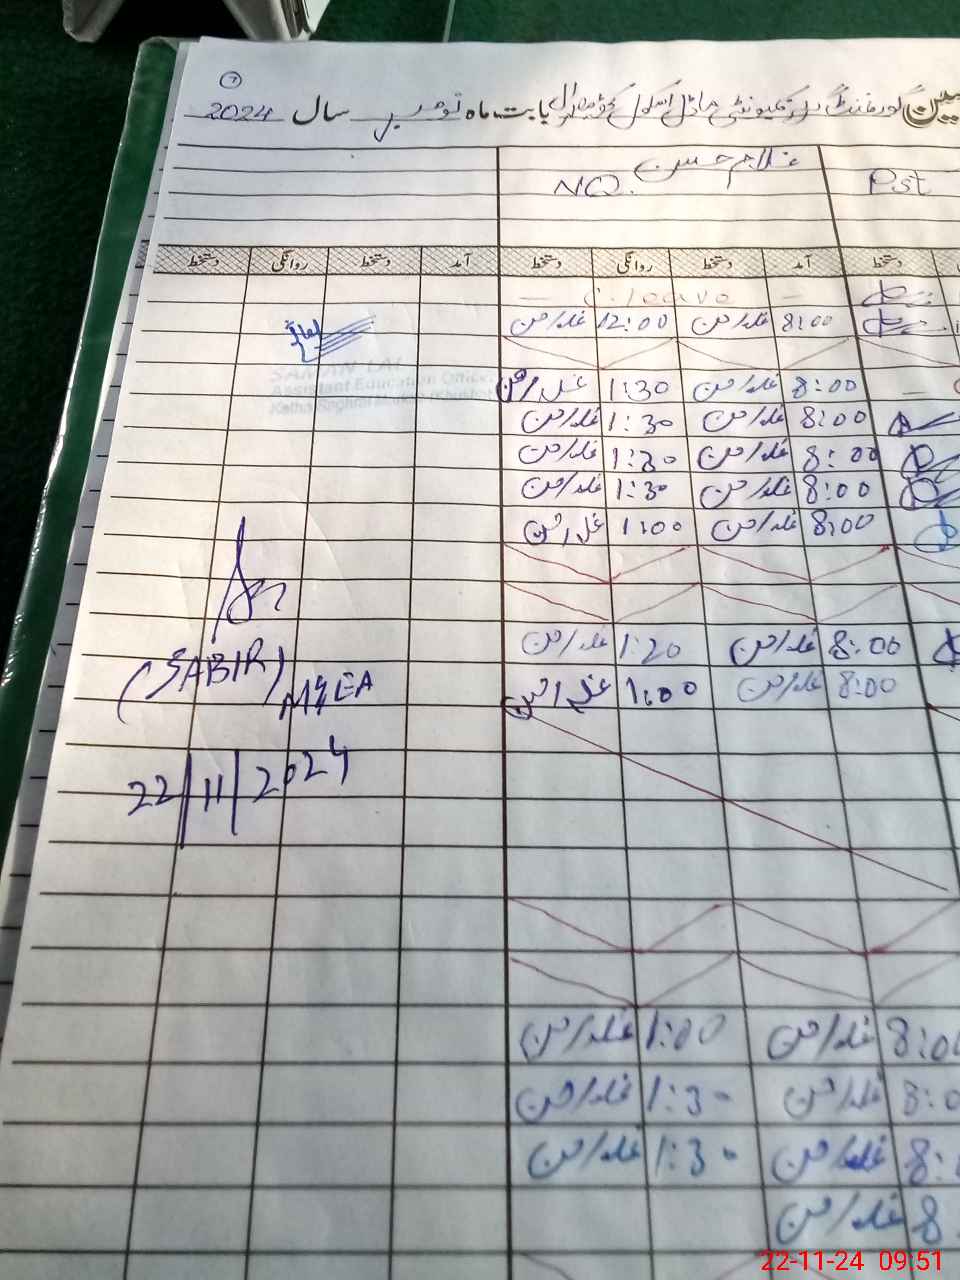 گورنمنٹ گرلز کمیونٹی ماڈل سکول بابت ماہ نومبر سال 2024
غلام حسن
NQ. Pst
آمد دستخط روانگی دستخط آمد دستخط روانگی دستخط
C. leave
8:00 غلام حسن 12:00 غلام حسن
SAMAN LAL
Assistant Education Officer
8:00 غلام حسن 1:30 غلام حسن
8:00 غلام حسن 1:30 غلام حسن
8:00 غلام حسن 1:30 غلام حسن
8:00 غلام حسن 1:30 غلام حسن
8:00 غلام حسن 1:00 غلام حسن
8:00 غلام حسن 1:20 غلام حسن
(SABIR)
MGEA
8:00 غلام حسن 1:00 غلام حسن
22/11/2024
غلام حسن 1:00 غلام حسن
غلام حسن 1:30 غلام حسن
غلام حسن 1:30 غلام حسن
غلام حسن
22-11-24 09:51